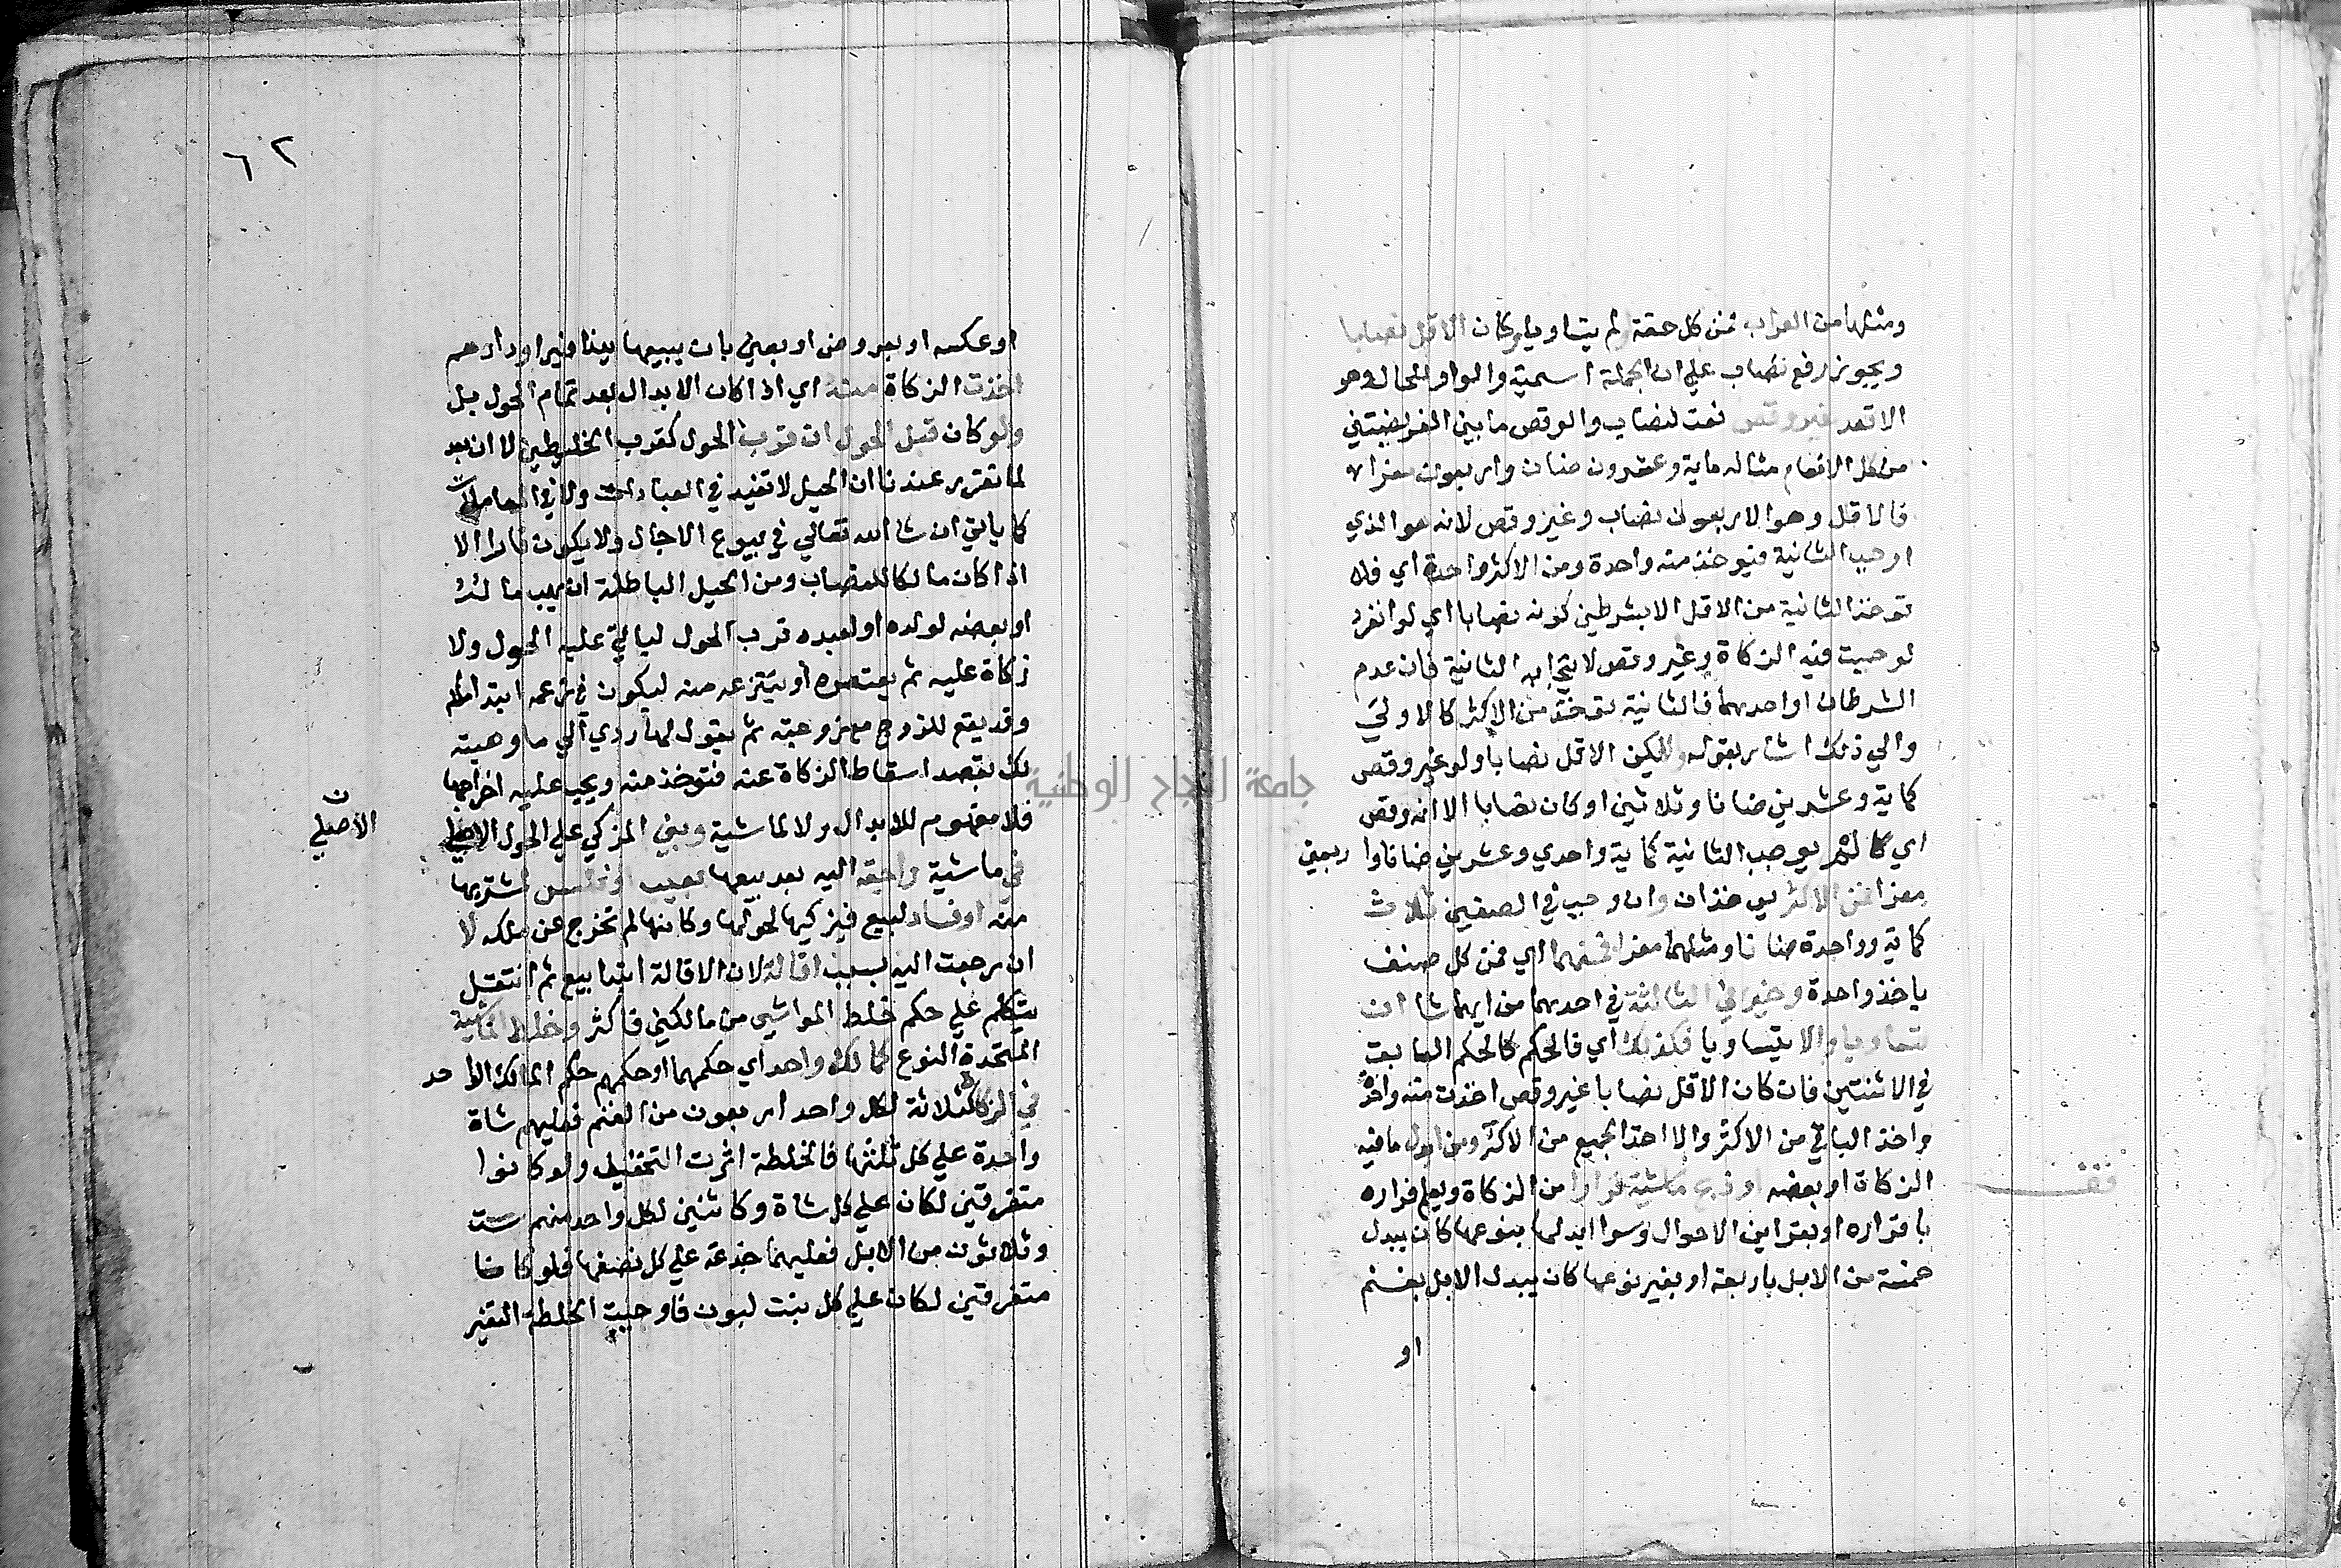 ومثلها من العراب فمن كل حقة ولم يتساويا وكان الاقل نصابا
ويجوز رفع نصاب علي ان الجملة اسمية والواو للحال وهو
الاقعد غير وقص نعت لنصاب والوقص ما بين الفريضتين
من كل الانعام مثاله ماية وعشرون ضان واربعون معزا
فالاقل وهو الاربعون نصاب وغير وقص لانه هو الذي
اوجب الثانية فيوخذ منه واحدة ومن الاكثر واحدة اي فلا
توخذ الثانية من الاقل الا بشرطين كونه نصابا اي لو انفرد
لوجبت فيه الزكاة وغير وقص لايجابه الثانية فان عدم
الشرطان او احدهما فالثانية توخذ من الاكثر كالاولي
والي ذلك اشار بقوله ولم يكن الاقل نصابا ولو غير وقص
كماية وعشرين ضانا وثلاثين او كان نصابا الا انه وقص
اي كا لم يوجب الثانية كماية واحدي وعشرين ضانا واربعين
معزا فمن الاكثر يوخذان وان وجب في الصنفين ثلاث
كماية وواحدة ضانا ومثلهما معزا فمنهما اي فمن كل صنف
ياخذ واحدة وخير في الثالثة في احدهما من ايهما شا ان
تساويا والا يتساويا فكذلك اي فالحكم كالحكم السابق
في الاثنتين فان كان الاقل نصابا غير وقص اخذت منه واحدة
واخذ الباقي من الاكثر والا اخذ الجميع من الاكثر ومن ابدل ما فيه
الزكاة او بعضه او ذبح ماشية فرارا من الزكاة ويعلم فراره
باقراره او بقراين الاحوال وسوا ابدلها بنوعها كان يبدل
خمسة من الابل باربعة او بغير نوعها كان يبدل الابل بغنم
او
قف
٦٢
او عكسه او بعروض او بعين بان يبيعها بدنانير او دراهم
اخذت الزكاة منه اي اذا كان الابدال بعد تمام الحول بل
ولو كان قبل الحول ان قرب الحول كقرب الخليطين لا ان بعد
لما تقرر عندنا ان الحيل لا تفيد في العبادات ولا في المعاملات
كما ياتي ان شا الله تعالي في بيوع الاجال ولا يكون فارا الا
اذا كان مالكا للنصاب ومن الحيل الباطلة ان يهب ماله
او بعضه لولده او لعبده قرب الحول لياتي عليه الحول ولا
زكاة عليه ثم يعتصره او ينتزعه منه ليكون في زعمه ابتدا ملك
وقد يقع للزوج مع زوجته ثم يقول لها ردي الي ما وهبته
لك بقصد اسقاط الزكاة عنه فتوخذ منه ويجب عليه اخراجها
فلا مفهوم للابدال ولا لماشية وبني المزكي علي الحول الاصلي
ن
الاصلي
في ماشية راجعة اليه بعد بيعها بعيب او فلس مشتريها
منه او فساد لبيع فيزكيها لحولها وكانها لم تخرج عن ملكه لا
ان رجعت اليه بسبب اقالة لان الاقالة ابتدا بيع ثم انتقل
يتكلم علي حكم خلط المواشي من مالكين فاكثر وخلط الماشية
المتحدة النوع كمالك واحد اي حكمهما او حكمهم حكم المالك الواحد
في الزكاة كثلاثة لكل واحد اربعون من الغنم فعليهم شاة
واحدة علي كل ثلثها فالخلطة اثرت التخفيف ولو كانوا
متفرقين لكان علي كل شاة وكاثنين لكل واحد منهم ست
وثلاثون من الابل فعليهما جذعة علي كل نصفها فلو كانا
متفرقين لكان علي كل بنت لبون فاوجبت الخلطة التغير
جامعة النجاح الوطنية